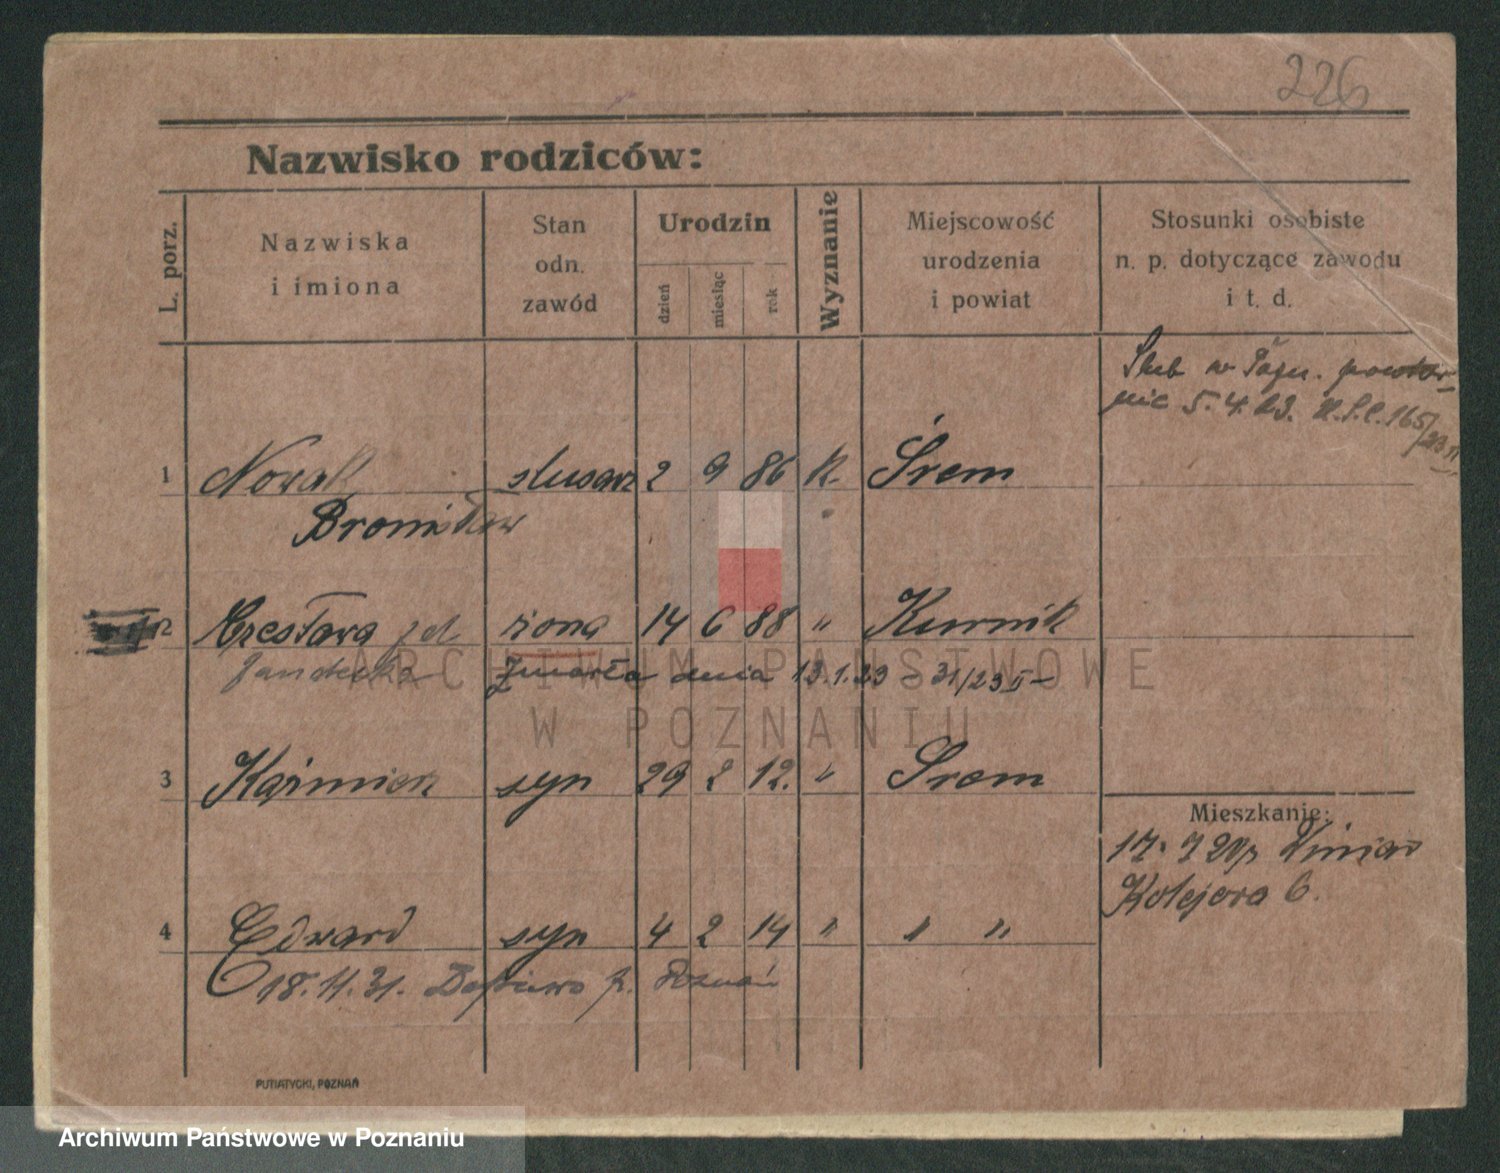 226
Nazwisko rodziców:
L. porz.
Nazwiska
i imiona
Stan
odn.
zawód
Urodzin
dzień
miesiąc
rok
Wyznanie
Miejscowość
urodzenia
i powiat
Stosunki osobiste
n. p. dotyczące zawodu
i t. d.
Ślub w powtór-
nie 5.4.23. U.S.C. 165/23
1 Nowak ślusarz 2 9 86 k. Śrem
Bronisław
2 Czesława żona 14 6 88 " Kurnik
Zmarła dnia 13.1.23 - 31/23
ARCHIWUM PAŃSTWOWE
W POZNANIU
3 Kaźmierz syn 29 2 12. " Śrem
Mieszkanie:
17. 7 20
Kolejowa 6.
4 Edward syn 4 2 14 " " "
18.11.31. p. Poznań
PUTIATYCKI, POZNAŃ
Archiwum Państwowe w Poznaniu